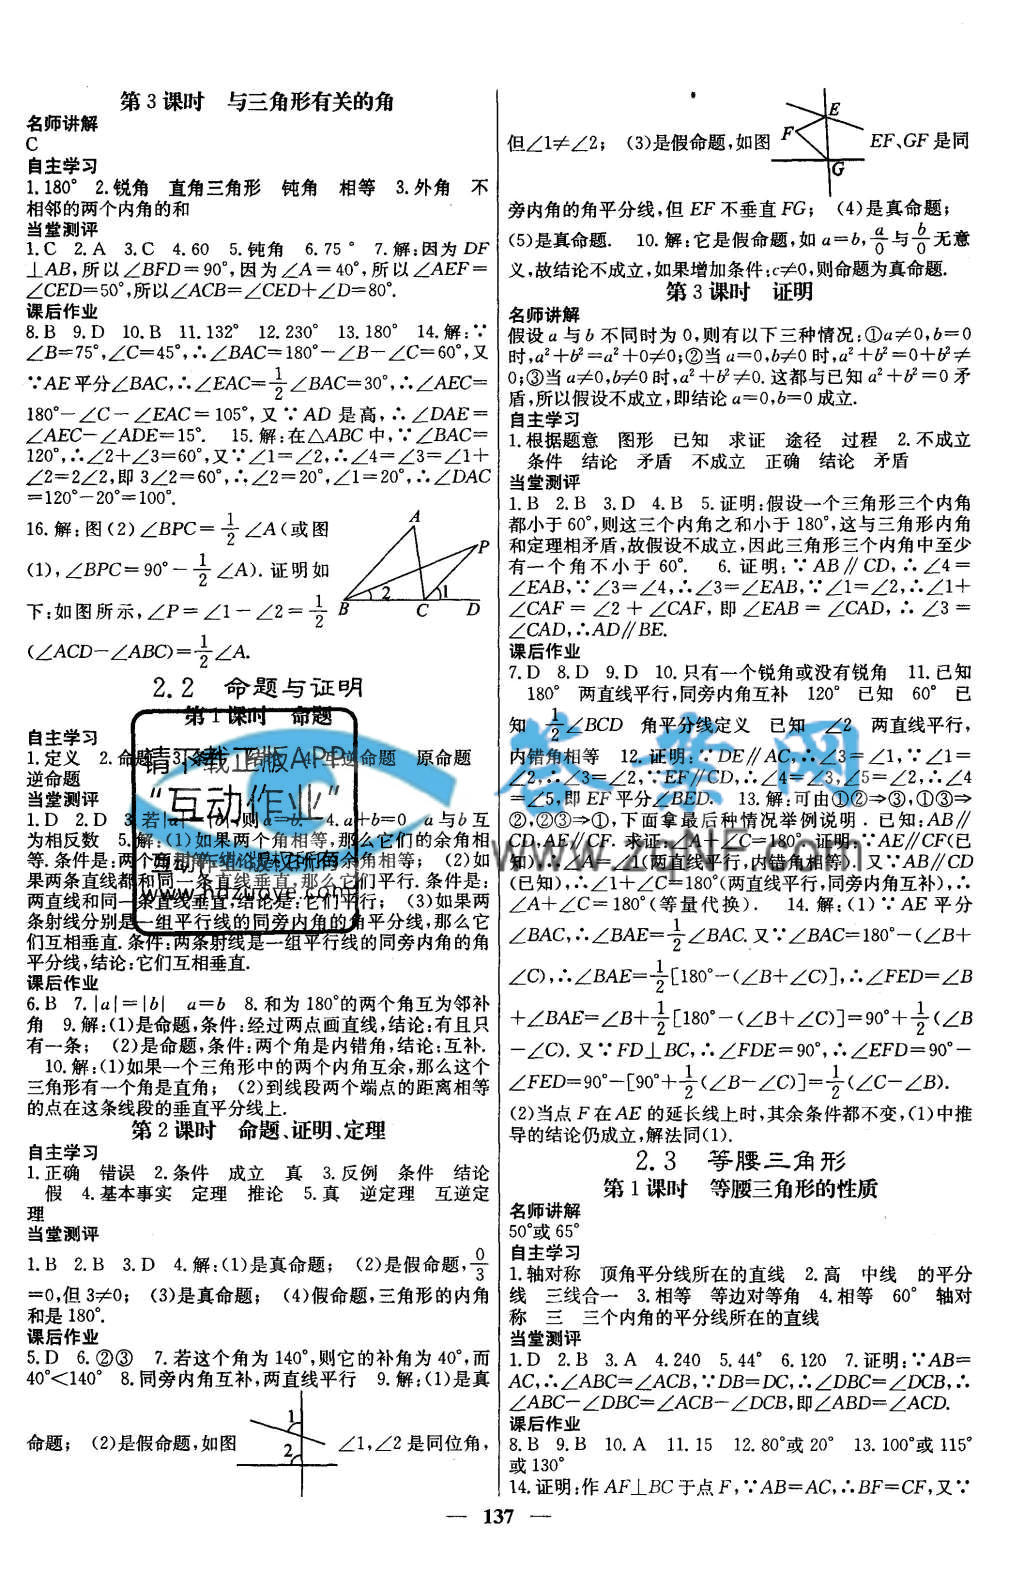 第3课时 与三角形有关的角
名师讲解
C
自主学习
1.180° 2.锐角 直角三角形 钝角 相等 3.外角 不
相邻的两个内角的和
当堂测评
1.C 2.A 3.C 4.60 5.钝角 6.75° 7.解:因为DF
⊥AB,所以∠BFD=90°,因为∠A=40°,所以∠AEF=
∠CED=50°,所以∠ACB=∠CED+∠D=80°.
课后作业
8.B 9.D 10.B 11.132° 12.230° 13.180° 14.解:∵
∠B=75°,∠C=45°,∴∠BAC=180°-∠B-∠C=60°,又
∵AE平分∠BAC,∴∠EAC=1/2∠BAC=30°,∴∠AEC=
180°-∠C-∠EAC=105°,又∵AD是高,∴∠DAE=
∠AEC-∠ADE=15°. 15.解:在△ABC中,∵∠BAC=
120°,∴∠2+∠3=60°,又∵∠1=∠2,∴∠4=∠3=∠1+
∠2=2∠2,即3∠2=60°,∴∠2=20°,∠1=20°,∴∠DAC
=120°-20°=100°.
16.解:图(2)∠BPC=1/2∠A(或图
(1),∠BPC=90°-1/2∠A).证明如
下:如图所示,∠P=∠1-∠2=1/2
(∠ACD-∠ABC)=1/2∠A.
A
P
2
1
B C D
2.2 命题与证明
第1课时 命题
自主学习
1.定义 2.命题 3.条件 结论 4.互逆命题 原命题
逆命题
当堂测评
1.D 2.D 3.若|a|=|b|,则a=b. 4.a+b=0 a与b互
为相反数 5.解:(1)如果两个角相等,那么它们的余角相
等.条件是:两个角相等,结论是:它们的余角相等; (2)如
果两条直线都和同一条直线垂直,那么它们平行.条件是:
两直线和同一条直线垂直,结论是:它们平行; (3)如果两
条射线分别是一组平行线的同旁内角的角平分线,那么它
们互相垂直.条件:两条射线是一组平行线的同旁内角的角
平分线,结论:它们互相垂直.
课后作业
6.B 7.|a|=|b| a=b 8.和为180°的两个角互为邻补
角 9.解:(1)是命题,条件:经过两点画直线,结论:有且只
有一条; (2)是命题,条件:两个角是内错角,结论:互补.
10.解:(1)如果一个三角形中的两个内角互余,那么这个
三角形有一个角是直角; (2)到线段两个端点的距离相等
的点在这条线段的垂直平分线上.
第2课时 命题、证明、定理
自主学习
1.正确 错误 2.条件 成立 真 3.反例 条件 结论
假 4.基本事实 定理 推论 5.真 逆定理 互逆定
理
当堂测评
1.B 2.B 3.D 4.解:(1)是真命题; (2)是假命题,0/3
=0,但3≠0; (3)是真命题; (4)假命题,三角形的内角
和是180°.
课后作业
5.D 6.②③ 7.若这个角为140°,则它的补角为40°,而
40°<140° 8.同旁内角互补,两直线平行 9.解:(1)是真
命题; (2)是假命题,如图 1 2 ∠1,∠2是同位角,
但∠1≠∠2; (3)是假命题,如图 E F G EF、GF是同
旁内角的角平分线,但EF不垂直FG; (4)是真命题;
(5)是真命题. 10.解:它是假命题,如a=b,a/0与b/0无意
义,故结论不成立,如果增加条件:c≠0,则命题为真命题.
第3课时 证明
名师讲解
假设a与b不同时为0,则有以下三种情况:①a≠0,b=0
时,a²+b²=a²+0≠0;②当a=0,b≠0时,a²+b²=0+b²≠
0;③当a≠0,b≠0时,a²+b²≠0.这都与已知a²+b²=0矛
盾,所以假设不成立,即结论a=0,b=0成立.
自主学习
1.根据题意 图形 已知 求证 途径 过程 2.不成立
条件 结论 矛盾 不成立 正确 结论 矛盾
当堂测评
1.B 2.B 3.D 4.B 5.证明:假设一个三角形三个内角
都小于60°,则这三个内角之和小于180°,这与三角形内角
和定理相矛盾,故假设不成立,因此三角形三个内角中至少
有一个角不小于60°. 6.证明:∵AB∥CD,∴∠4=
∠EAB,∵∠3=∠4,∴∠3=∠EAB,∵∠1=∠2,∴∠1+
∠CAF=∠2+∠CAF,即∠EAB=∠CAD,∴∠3=
∠CAD,∴AD∥BE.
课后作业
7.D 8.D 9.D 10.只有一个锐角或没有锐角 11.已知
180° 两直线平行,同旁内角互补 120° 已知 60° 已
知 1/2∠BCD 角平分线定义 已知 ∠2 两直线平行,
内错角相等 12.证明:∵DE∥AC,∴∠3=∠1,∵∠1=
∠2,∴∠3=∠2,∵EF∥CD,∴∠4=∠3,∠5=∠2,∴∠4
=∠5,即EF平分∠BED. 13.解:可由①②⇒③,①③⇒
②,②③⇒①,下面拿最后种情况举例说明.已知:AB∥
CD,AE∥CF.求证:∠A+∠C=180°.证明:∵AE∥CF(已
知),∴∠A=∠1(两直线平行,内错角相等).又∵AB∥CD
(已知),∴∠1+∠C=180°(两直线平行,同旁内角互补),∴
∠A+∠C=180°(等量代换). 14.解:(1)∵AE平分
∠BAC,∴∠BAE=1/2∠BAC.又∵∠BAC=180°-(∠B+
∠C),∴∠BAE=1/2[180°-(∠B+∠C)],∴∠FED=∠B
+∠BAE=∠B+1/2[180°-(∠B+∠C)]=90°+1/2(∠B
-∠C).又∵FD⊥BC,∴∠FDE=90°,∴∠EFD=90°-
∠FED=90°-[90°+1/2(∠B-∠C)]=1/2(∠C-∠B).
(2)当点F在AE的延长线上时,其余条件都不变,(1)中推
导的结论仍成立,解法同(1).
2.3 等腰三角形
第1课时 等腰三角形的性质
名师讲解
50°或65°
自主学习
1.轴对称 顶角平分线所在的直线 2.高 中线 的平分
线 三线合一 3.相等 等边对等角 4.相等 60° 轴对
称 三 三个内角的平分线所在的直线
当堂测评
1.D 2.B 3.A 4.240 5.44° 6.120 7.证明:∵AB=
AC,∴∠ABC=∠ACB,∵DB=DC,∴∠DBC=∠DCB,∴
∠ABC-∠DBC=∠ACB-∠DCB,即∠ABD=∠ACD.
课后作业
8.B 9.B 10.A 11.15 12.80°或20° 13.100°或115°
或130°
14.证明:作AF⊥BC于点F,∵AB=AC,∴BF=CF,又∵
— 137 —
请下载正版APP
“互动作业”
www.hdzuoye.com
答案网
www.zqNF.com